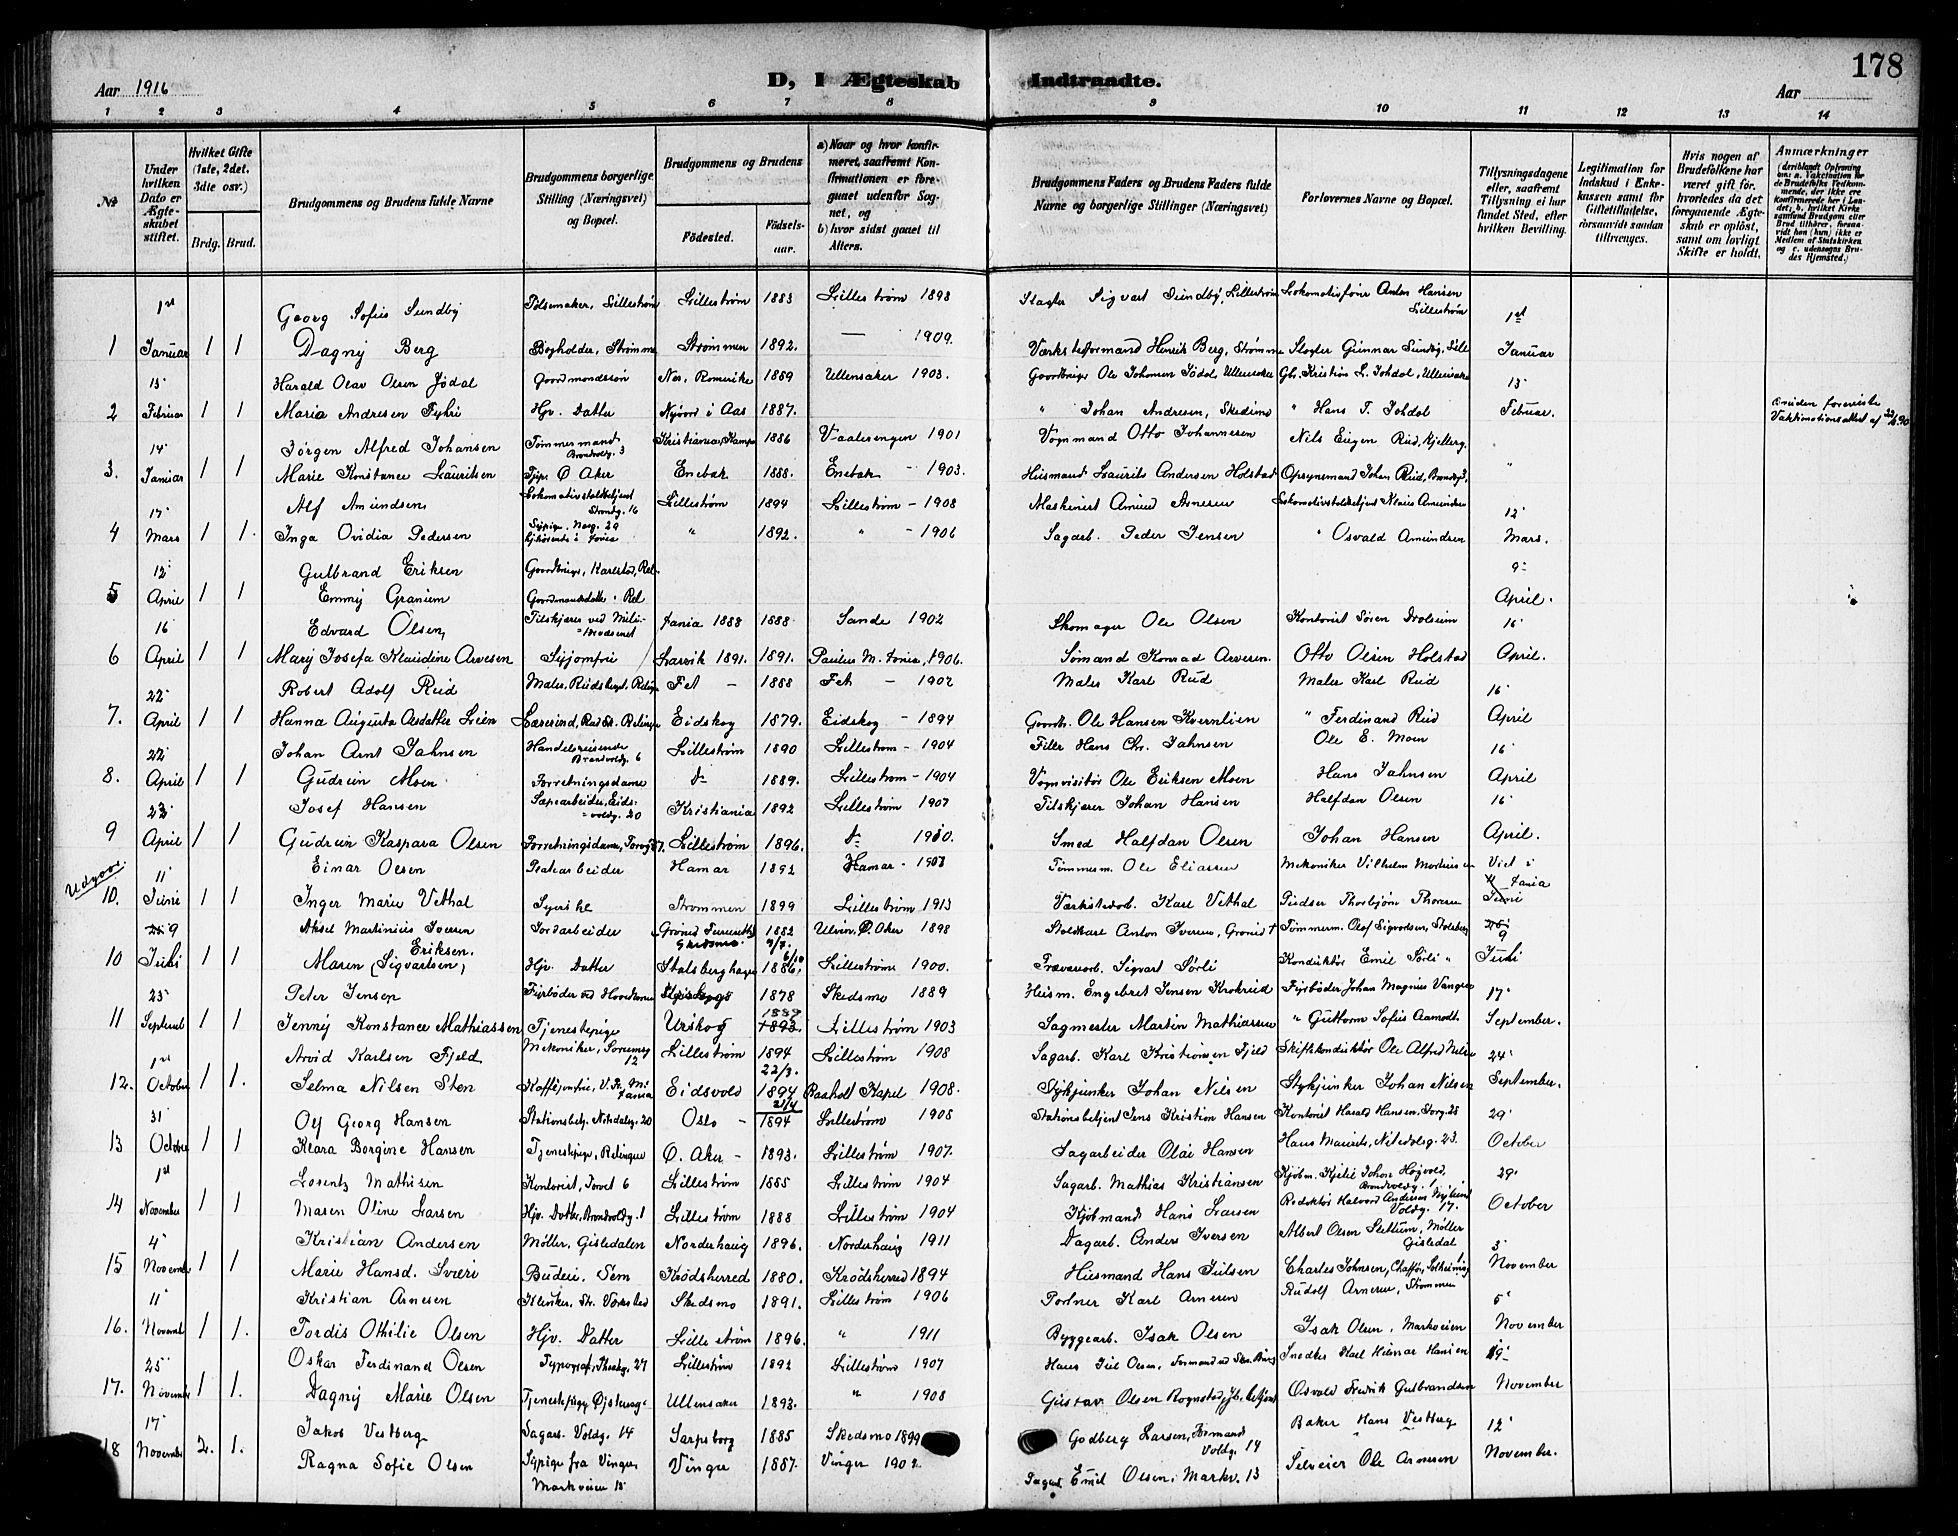 178
Aar 1916
D, I Ægteskab Indtraadte.
Aar
1 2 3 4 5 6 7 8 9 10 11 12 13 14
№
Under hvilken Dato er Ægteskabet stiftet.
Hvilket Gifte (1ste, 2det, 3die osv.)
Brdg. Brud.
Brudgommens og Brudens fulde Navne
Brudgommens borgerlige Stilling (Næringsvei) og Bopæl.
Brudgommens og Brudens
Fødested.
Fødselsaar.
a) Naar og hvor konfirmeret, saafremt Konfirmationen er foregaaet udenfor Sognet, og
b) hvor sidst gaaet til Alters.
Brudgommens Faders og Brudens Faders fulde Navne og borgerlige Stillinger (Næringsvei)
Forlovernes Navne og Bopæl.
Tillysningsdagene eller, saafremt Tillysning ei har fundet Sted, efter hvilken Bevilling.
Legitimation for Indskud i Enkekassen samt for Giftetilladelse, forsaavidt saadan tiltrænges.
Hvis nogen af Brudefolkene har været gift før, hvorledes da det foregaaende Ægteskab er opløst, samt om lovligt Skifte er holdt.
Anmærkninger
1st Georg Sofus Sundby Pølsemaker, Lillestrøm Lillestrøm 1883 Lillestrøm 1898 Slagter Sigvart Sundby, Lillestrøm Lokomotivfører Anton Hansen Lillestrøm 1st
1 Januar 1 1 Dagny Berg Bogholder, Strømmen Strømmen 1892. — 1909. Værkstedformand Henrik Berg, Strømmen Slagter Gunnar Sundby, Lille Januar
13 Harald Olav Olsen Jödal Gaardmandssøn Nes, Romerike 1889 Ullensaker 1903. Gaardbruger Ole Johansen Jödal, Ullensaker Gbr. Kristian L. Johdal, Ullensaker 13
2 Februar 1 1 Maria Andresen Fyhri Hjv. Datter Nyjord i Aas 1887. " Johan Andresen, Skedsmo " Hans T. Johdal Februar. Bruden foreviste Vakkinationsattest af
14 Jørgen Alfred Johansen Tømmermand Brandvoldg. 3 Kristiania, Kampen 1886 Vaalerengen 1901 Vognmand Otto Johannesen Nils Eugen Rud, Kjellerg. "
3. Januar 1 1 Marie Konstance Lauritsen Tjp. Ø. Aker Enebak 1888. Enebak - 1903. Husmand Laurits Andersen Holstad Opsynsmand Johan Rud, Brandvg. 3, "
17 Alf Amundsen Lokomotivstaldbetjent Strandg. 16 Lillestrøm 1894 Lillestrøm - 1908 Maskinist Amund Arnesen Lokomotivstaldbetjent Klaus Amundsen 12
4 Mars 1 1. Inga Ovidia Pedersen Sypige 1892. " - 1906 Sagarb. Peder Jensen " Osvald Amundsen Mars.
12 Gulbrand Eriksen Gaardbruger, Karlstad, Rel. 9
5 April 1 1 Emmy Granum Gaardmandsdatter, Rel April.
16 Edvard Olsen, Filskjærer ved 1888 1888 Sande 1902 Skomager Ole Olsen Kontorist Søren Drolsum 16
6 April 1 1 Mary Josefa Klaudine Arvesen Syjomfru Larvik 1891. 1891. Paulus M. 1906. Sømand Konrad Arvesen. Otto Olsen Holstad April.
22 Robert Adolf Rud Maler, Rudsberget, Relingen Fet - 1888 Fet - 1902 Maler Karl Rud Maler Karl Rud 16
7. April 1 1 Hanna Augusta Olsdatter Lien Eidskog 1879. Eidskog - 1894 Gaardbr. Ole Hansen Kvernlien " Ferdinand Rud April
22 Johan Arnt Jahnsen Handelsreisende Brandvoldg. 6 Lillestrøm 1890 Lillestrøm - 1904 Filer Hans Chr. Jahnsen Ole E. Moen 16
8. April 1 1 Gudrun Moen Forretningsdame do 1889. Lillestrøm - 1904 Vognvisitør Ole Eriksen Moen Hans Jahnsen April
23 Josef Hansen Sæpearbeider, Eidsvoldg. 20 Kristiania 1892 Lillestrøm 1907 Filskjærer Johan Hansen Halfdan Olsen 16
9 April 1 1 Gudrun Kaspara Olsen Forretningsdame, Torvg. 57. Lillestrøm 1896. do 1910. Smed Halfdan Olsen Johan Hansen April.
Udgaar
11 Einar Olsen Platearbeider Hamar 1892 Hamar - 1907 Tømmerm. Ole Eliassen Mekaniker Vilhelm Martinsen Viet i
10. Juni 1 1 Inger Marie Vethal Syerske Strømmen 1899 Lillestrøm 1913 Værkstedarb. Karl Vethal Pudser Thorbjørn Thoresen Juni
9 Aksel Martinius Iversen Jordarbeider 1882 Ulvin, Ø. Aker 1898 Staldkarl Anton Iversen Tømmerm. Olaf Sigvartsen, Stalsberg 9
10 Juli 1 1 Maren (Sigvartsen) Eriksen. Hjv. Datter Stalsberghagen 1886, Lillestrøm 1900. Prævearb. Sigvart Sørli Konduktør Emil Sørli " Juli
23 Peter Jensen Fyrbøder ved Hovedbanen 1878 Skedsmo 1889 Husm. Engebret Jensen Krokrud Fyrbøder Johan Magnus Vangen 17
11 Septemb 1 1 Jenny Konstance Mathiassen Tjenestepige Urskog 1889 1893. Lillestrøm 1903 Sagmester Martin Mathiassen " Guttorm Sofus Aamodt September.
1st Arvid Karlsen Fjeld Mekaniker, 12 Lillestrøm 1894 Lillestrøm 1908 Sagarb. Karl Kristiansen Fjeld Skiftekonduktør Ole Alfred Nilsen 24
12. October 1 1. Selma Nilsen Sten Eidsvold 22/3. 1897 Raaholt Kapel 1908. Stykjunker Johan Nilsen Stykjunker Johan Nilsen September.
31 Olf Georg Hansen Stationsbetj. Nitedalsg. 20 Oslo - 21/4 1894 Lillestrøm 1908 Stationsbetjent Jens Kristian Hansen Kontorist Harald Hansen, Storg. 28 29
13 October 1 1 Klara Borgine Hansen Tjenestepige, Relingen Ø. Aker - 1893. Lillestrøm 1907. Sagarbeider Olai Hansen Hans Maurits, Nitedalsg. 23. October
1st Lorentz Mathisen Kontorist, Torvet 6 Lillestrøm 1885 Lillestrøm 1904 Sagarb. Mathias Kristiansen Kjøbm. Johan Høgvold, Brandvoldg. 1 29
14 November 1 1 Maren Oline Larsen Hjv. Datter, Brandvoldg. 1 Lillestrøm 1888 Lillestrøm 1904 Kjøbmand Hans Larsen Redaktør Halvard Andersen Voldg. 17. October
4 Kristian Andersen Møller, Gisledalen Norderhaug 1896. Norderhaug 1911 Dagarb. Anders Iversen Albert Olsen Slettum, Møller Gisledal 5
15 November 1 1. Marie Hansd. Sværi Budeie, Sem Krødsherred 1880. Krødsherred 1894 Husmand Hans Juelsen Charles Johnsen, November
11 Kristian Arnesen Klinker, Str. Værksted Skedsmo 1891. Lillestrøm 1906 Portner Karl Arnesen Rudolf Arnesen, Strømmen 5
16. Novemb 1 1. Tordis Othilie Olsen Hjv. Datter Lillestrøm 1896. " 1911 Byggearb. Isak Olsen Isak Olsen, Markveien November
25 Oskar Ferdinand Olsen Typograf, 27 Lillestrøm 1892 Lillestrøm 1907 Hans Juel Olsen, Formand Snedker Karl Hilmar Hansen 19
17. November 1 1. Dagny Marie Olsen Tjenestepige Ullensaker 1893. " 1908 Gustav Olsen Rognstad, Jb. betjent Osvald Fredrik Gulbrandsen November
17 Jakob Vestberg Sagarb. Voldg. 14 Sarpsborg 1885 Skedsmo 1899 Godberg Larsen, Formand Voldg. 14 Baker Hans Vestberg 12
18 November 2. 1. Ragna Sofie Olsen Sypige fra Vinger, Markveien 13 Vinger 1887. Vinger 1902. Sagarb Emil Olsen, Markv. 13 Selveier Ole Arnesen November.